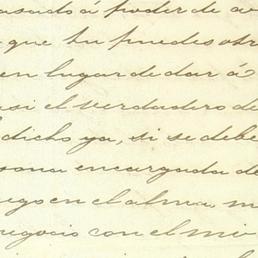 pasado á poder de
que tu puedes obr
en lugar de dar á
asi el verdadero de
dicho ya, si se debe
sona encargada de
ego en el alma, m
negocio con el mi